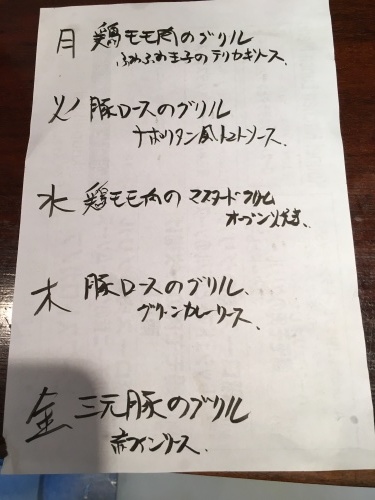 月 鶏モモ肉のグリル
ふわふわ玉子のテリカギソース、
火 豚ロースのグリル
ナポリタン風トマトソース、
水 鶏モモ肉の マスタードクリーム
オーブン焼き、
木 豚ロースのグリル、
グリーンカレーソース、
金 三元豚のグリル
赤ワインソース、